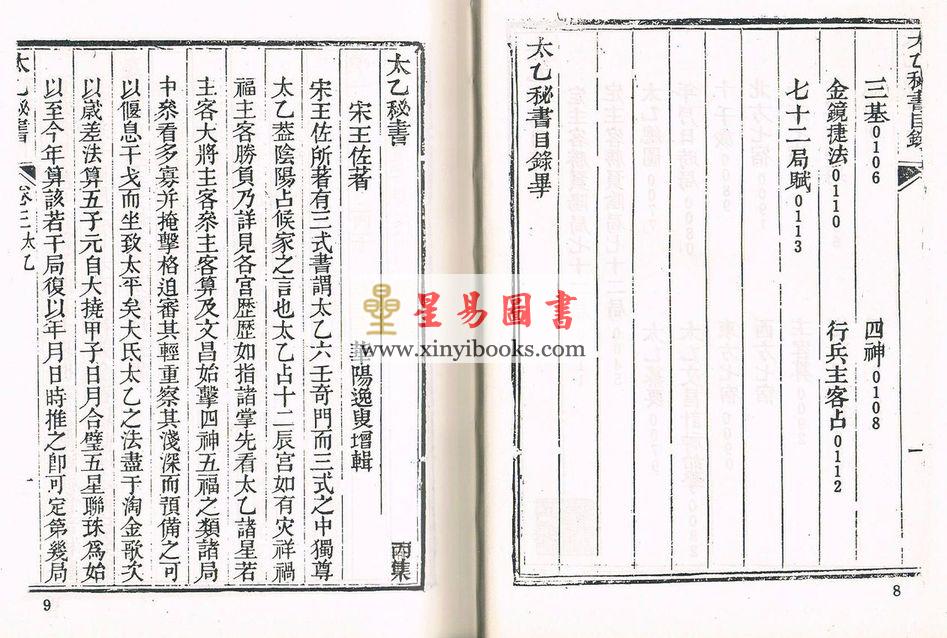 太乙秘書目錄 一
三基0106 四神0108
金鏡捷法0110 行兵主客占0112
七十二局賦0113
太乙秘書目錄畢
8
太乙秘書 丙集
宋王佐著 華陽逸叟增輯
宋王佐所著有三式書謂太乙六壬奇門而三式之中獨尊
太乙葢陰陽占候家之言也太乙占十二辰宮如有灾祥禍
福主客勝負乃詳見各宮歷歷如指諸掌先看太乙諸星若
主客大將主客叅主客算及文昌始擊四神五福之類諸局
中叅看多寡并掩擊格迫審其輕重察其淺深而預備之可
以偃息干戈而坐致太平矣大氐太乙之法盡于淘金歌次
以歲差法算五子元自大撓甲子日月合璧五星聯珠爲始
以至今年算該若干局復以年月日時推之卽可定第幾局
太乙秘書 卷三太乙 一
9
星易圖書
www.xinyibooks.com